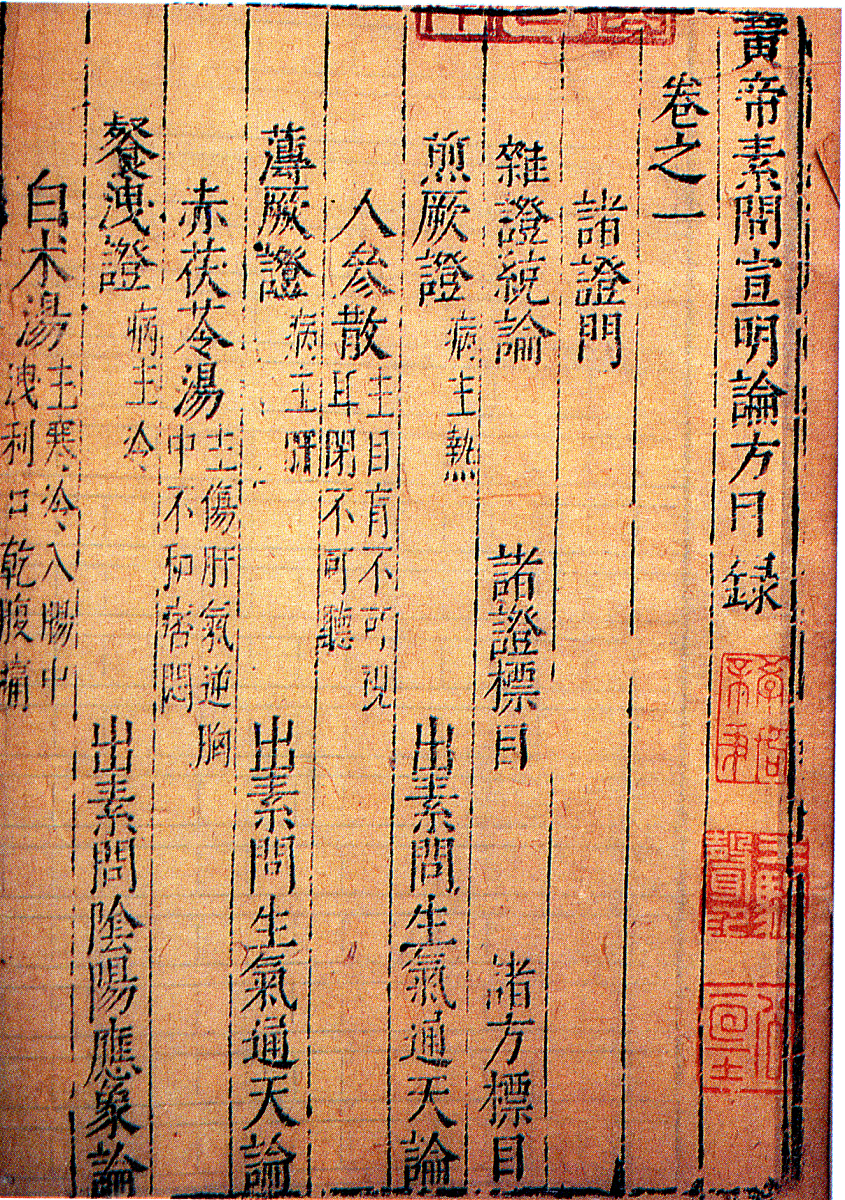 黃帝素問宣明論方目録
卷之一
諸證門
雜證緫論 諸證標目 諸方標目
煎厥證 病主熱 出素問生氣通天論
人參散 主目盲不可視
耳閉不可聽
薄厥證 病主肝 出素問生氣通天論
赤茯苓湯 主傷肝氣逆胸
中不和痞悶
飱洩證 病主冷 出素問陰陽應象論
白术湯 主寒冷入腸中
洩利口乾腹痛